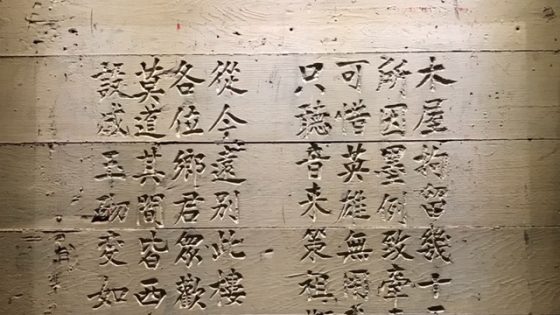 木屋拘留幾十
所囚墨例致牽
可惜英雄無用
只聽音來策祖
從今遠別此樓
各位鄉君眾歡
莫道其間皆西
設成玉砌變如